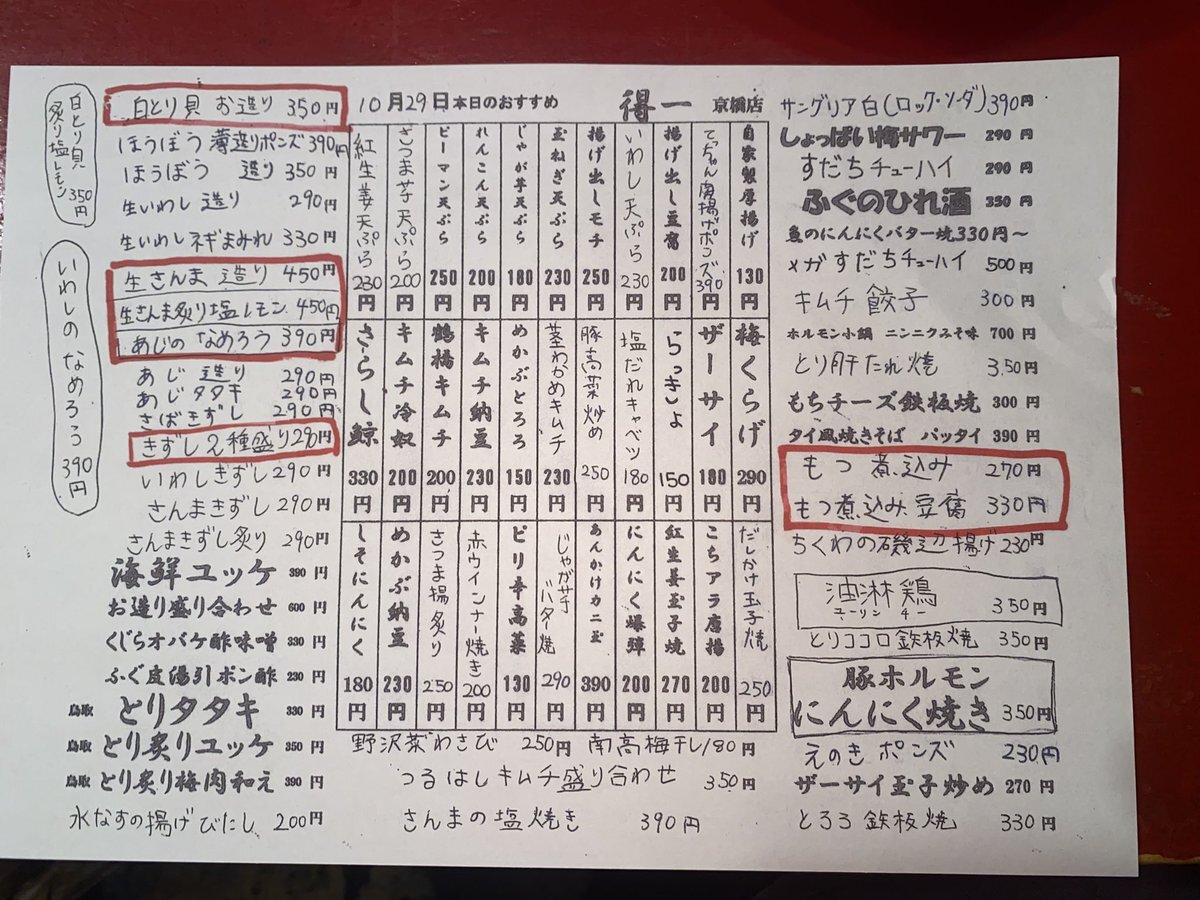 白とり貝 炙り塩レモン 350円
いわしのなめろう 390円
白とり貝 お造り 350円
ほうぼう 薄造りポンズ 390円
ほうぼう 造り 350円
生いわし 造り 290円
生いわしネギまみれ 330円
生さんま 造り 450円
生さんま炙り塩レモン 450円
あじの なめろう 390円
あじ 造り 290円
あじタタキ 290円
さばきずし 290円
きずし2種盛り 290円
いわしきずし 290円
さんまきずし 290円
さんまきずし炙り 290円
海鮮ユッケ 390円
お造り盛り合わせ 600円
くじらオバケ酢味噌 330円
ふぐ皮湯引ポン酢 230円
鳥取 とりタタキ 330円
鳥取 とり炙りユッケ 350円
鳥取 とり炙り梅肉和え 390円
水なすの揚げびたし 200円
10月29日本日のおすすめ 得一 京橋店
自家製厚揚げ 130円
てっちゃん唐揚げポンズ 390円
揚げ出し豆腐 200円
いわし天ぷら 230円
揚げ出しモチ 250円
玉ねぎ天ぷら 230円
じゃが芋天ぷら 180円
れんこん天ぷら 200円
ピーマン天ぷら 250円
さつま芋天ぷら 200円
紅生姜天ぷら 230円
梅くらげ 290円
ザーサイ 180円
らっきょ 150円
塩だれキャベツ 180円
豚高菜炒め 250円
茎わかめキムチ 230円
めかぶとろろ 150円
キムチ納豆 230円
鶴橋キムチ 200円
キムチ冷奴 200円
さらし鯨 330円
だしかけ玉子焼 250円
こちアラ唐揚 200円
紅生姜玉子焼 270円
にんにく爆弾 200円
あんかけカニ玉 390円
じゃがチーバター焼 290円
ピリ辛高菜 130円
赤ウインナー焼き 200円
さつま揚炙り 250円
めかぶ納豆 230円
しそにんにく 180円
野沢菜わさび 250円 南高梅干し 180円
つるはしキムチ盛り合わせ 350円
さんまの塩焼き 390円
サングリア白(ロック・ソーダ) 390円
しょっぱい梅サワー 290円
すだちチューハイ 290円
ふぐのひれ酒 350円
魚のにんにくバター焼330円~
メガすだちチューハイ 500円
キムチ餃子 300円
ホルモン小鍋 ニンニクみそ味 700円
とり肝たれ焼 350円
もちチーズ鉄板焼 300円
タイ風焼きそば パッタイ 390円
もつ煮込み 270円
もつ煮込み豆腐 330円
ちくわの磯辺揚げ 230円
油淋鶏 350円
ユーリンチー
とりココロ鉄板焼 350円
豚ホルモン
にんにく焼き 350円
えのきポンズ 230円
ザーサイ玉子炒め 270円
とろろ鉄板焼 330円